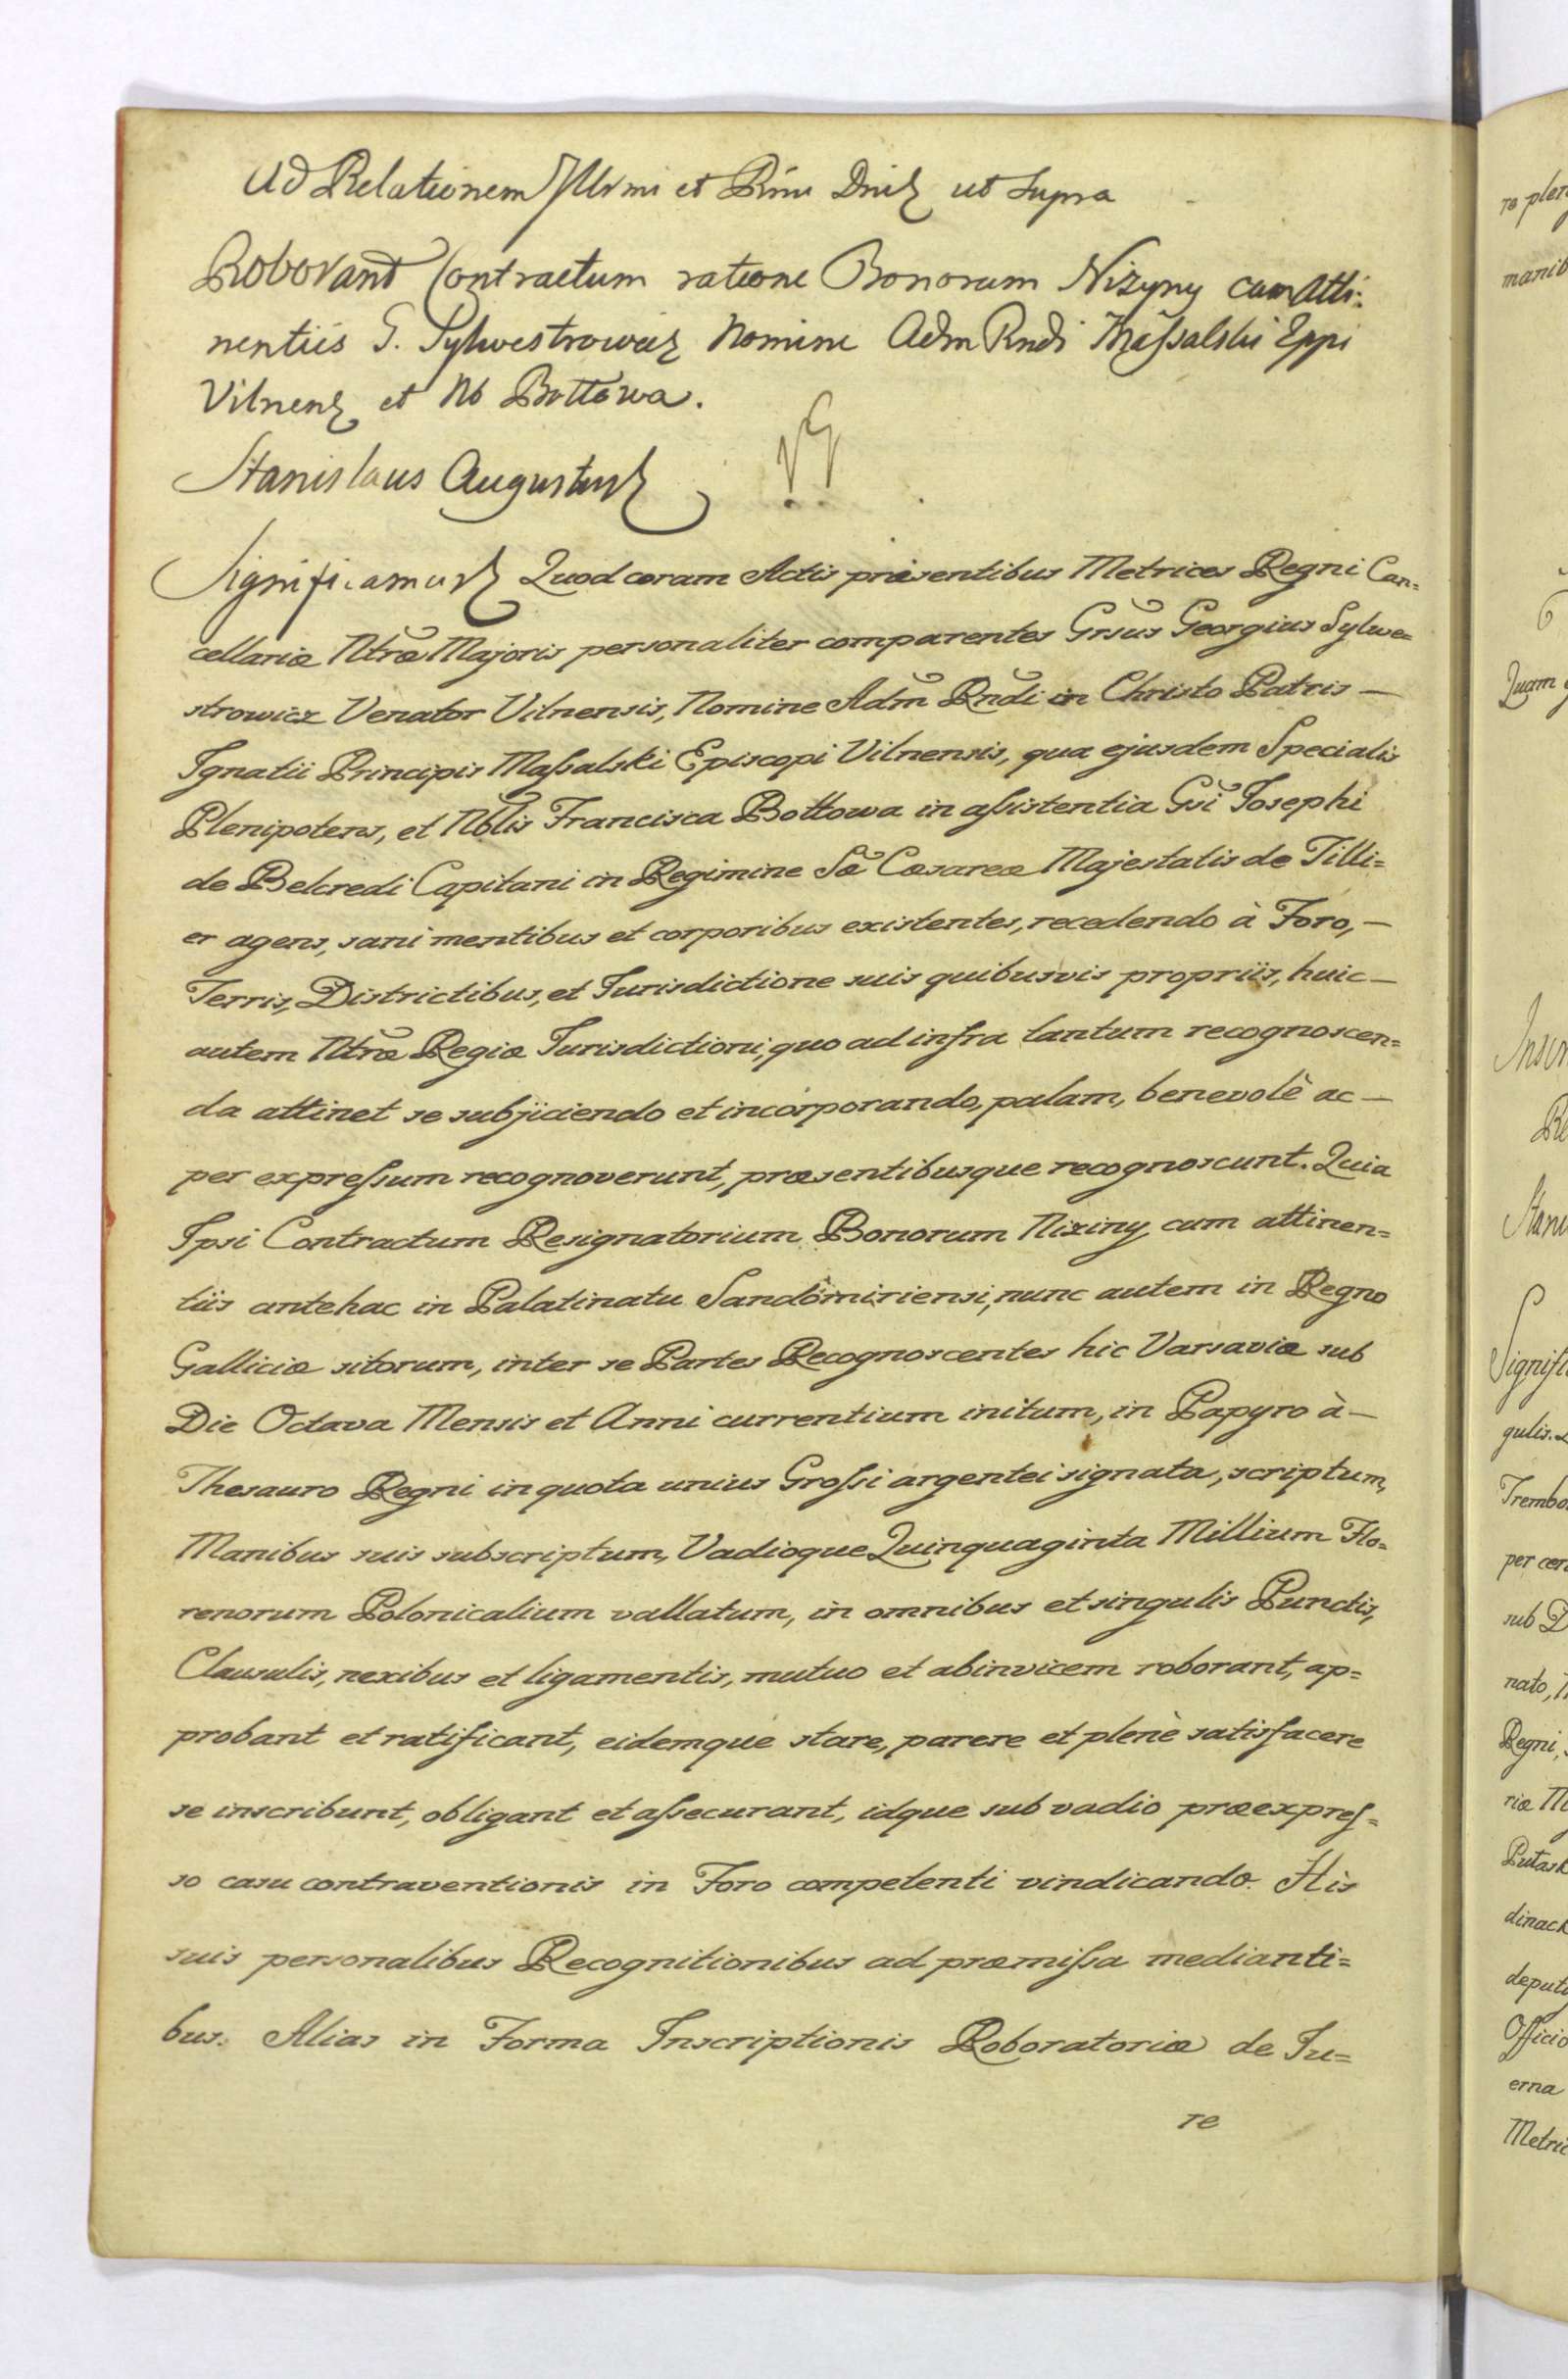 Ad Relationem Illrmi et Rmi Dni ut supra
Roborant Contractum ratione Bonorum Nizyny cum atti:
nentiis G. Sylwestrowicz Nomine Adm Rndi Maſsalski Eppi
Vilnens et Nb Bottowa.
Stanislaus Augustus
Significamus Quod coram Actis præsentibus Metrices Regni Can=
cellariæ Ntræ Majoris personaliter comparentes Grsus Georgius Sylwe=
strowicz Venator Vilnensis, Nomine Adm Rndi in Christo Patris —
Ignatii Principis Maſsalski Episcopi Vilnensis, qua ejusdem Specialis
Plenipotens, et Nblis Francisca Bottowa in aſsistentia Gsi Josephi
de Belcredi Capitani in Regimine Sæ Cæsareæ Majestatis de Tilli=
er agens, sani mentibus et corporibus existentes, recedendo à Foro, —
Terris, Districtibus, et Jurisdictione suis quibusvis propriis, huic —
autem Ntræ Regiæ Jurisdictioni, quo ad infra tantum recognoscen=
da attinet se subjiciendo et incorporando, palam, benevolè ac —
per expreſsum recognoverunt, præsentibusque recognoscunt. Quia
Ipsi Contractum Resignatorium Bonorum Niziny cum attinen=
tiis antehac in Palatinatu Sandomiriensi, nunc autem in Regno
Galliciæ sitorum, inter se Partes Recognoscentes hic Varsaviæ sub
Die Octava Mensis et Anni currentium initum, in Papyro à —
Thesauro Regni in quota unius Groſsi argentei signata, scriptum,
Manibus suis subscriptum, Vadioque Quinquaginta Millium Flo=
renorum Polonicalium vallatum, in omnibus et singulis Punctis,
Clausulis, nexibus et ligamentis, mutuo et abinvicem roborant, ap=
probant et ratificant, eidemque stare, parere et plenè satisfacere
se inscribunt, obligant et aſsecurant, idque sub vadio præexpreſ=
so casu contraventionis in Foro competenti vindicando. His
suis personalibus Recognitionibus ad præmiſsa medianti=
bus. Alias in Forma Inscriptionis Roboratoriæ de Ju=
re